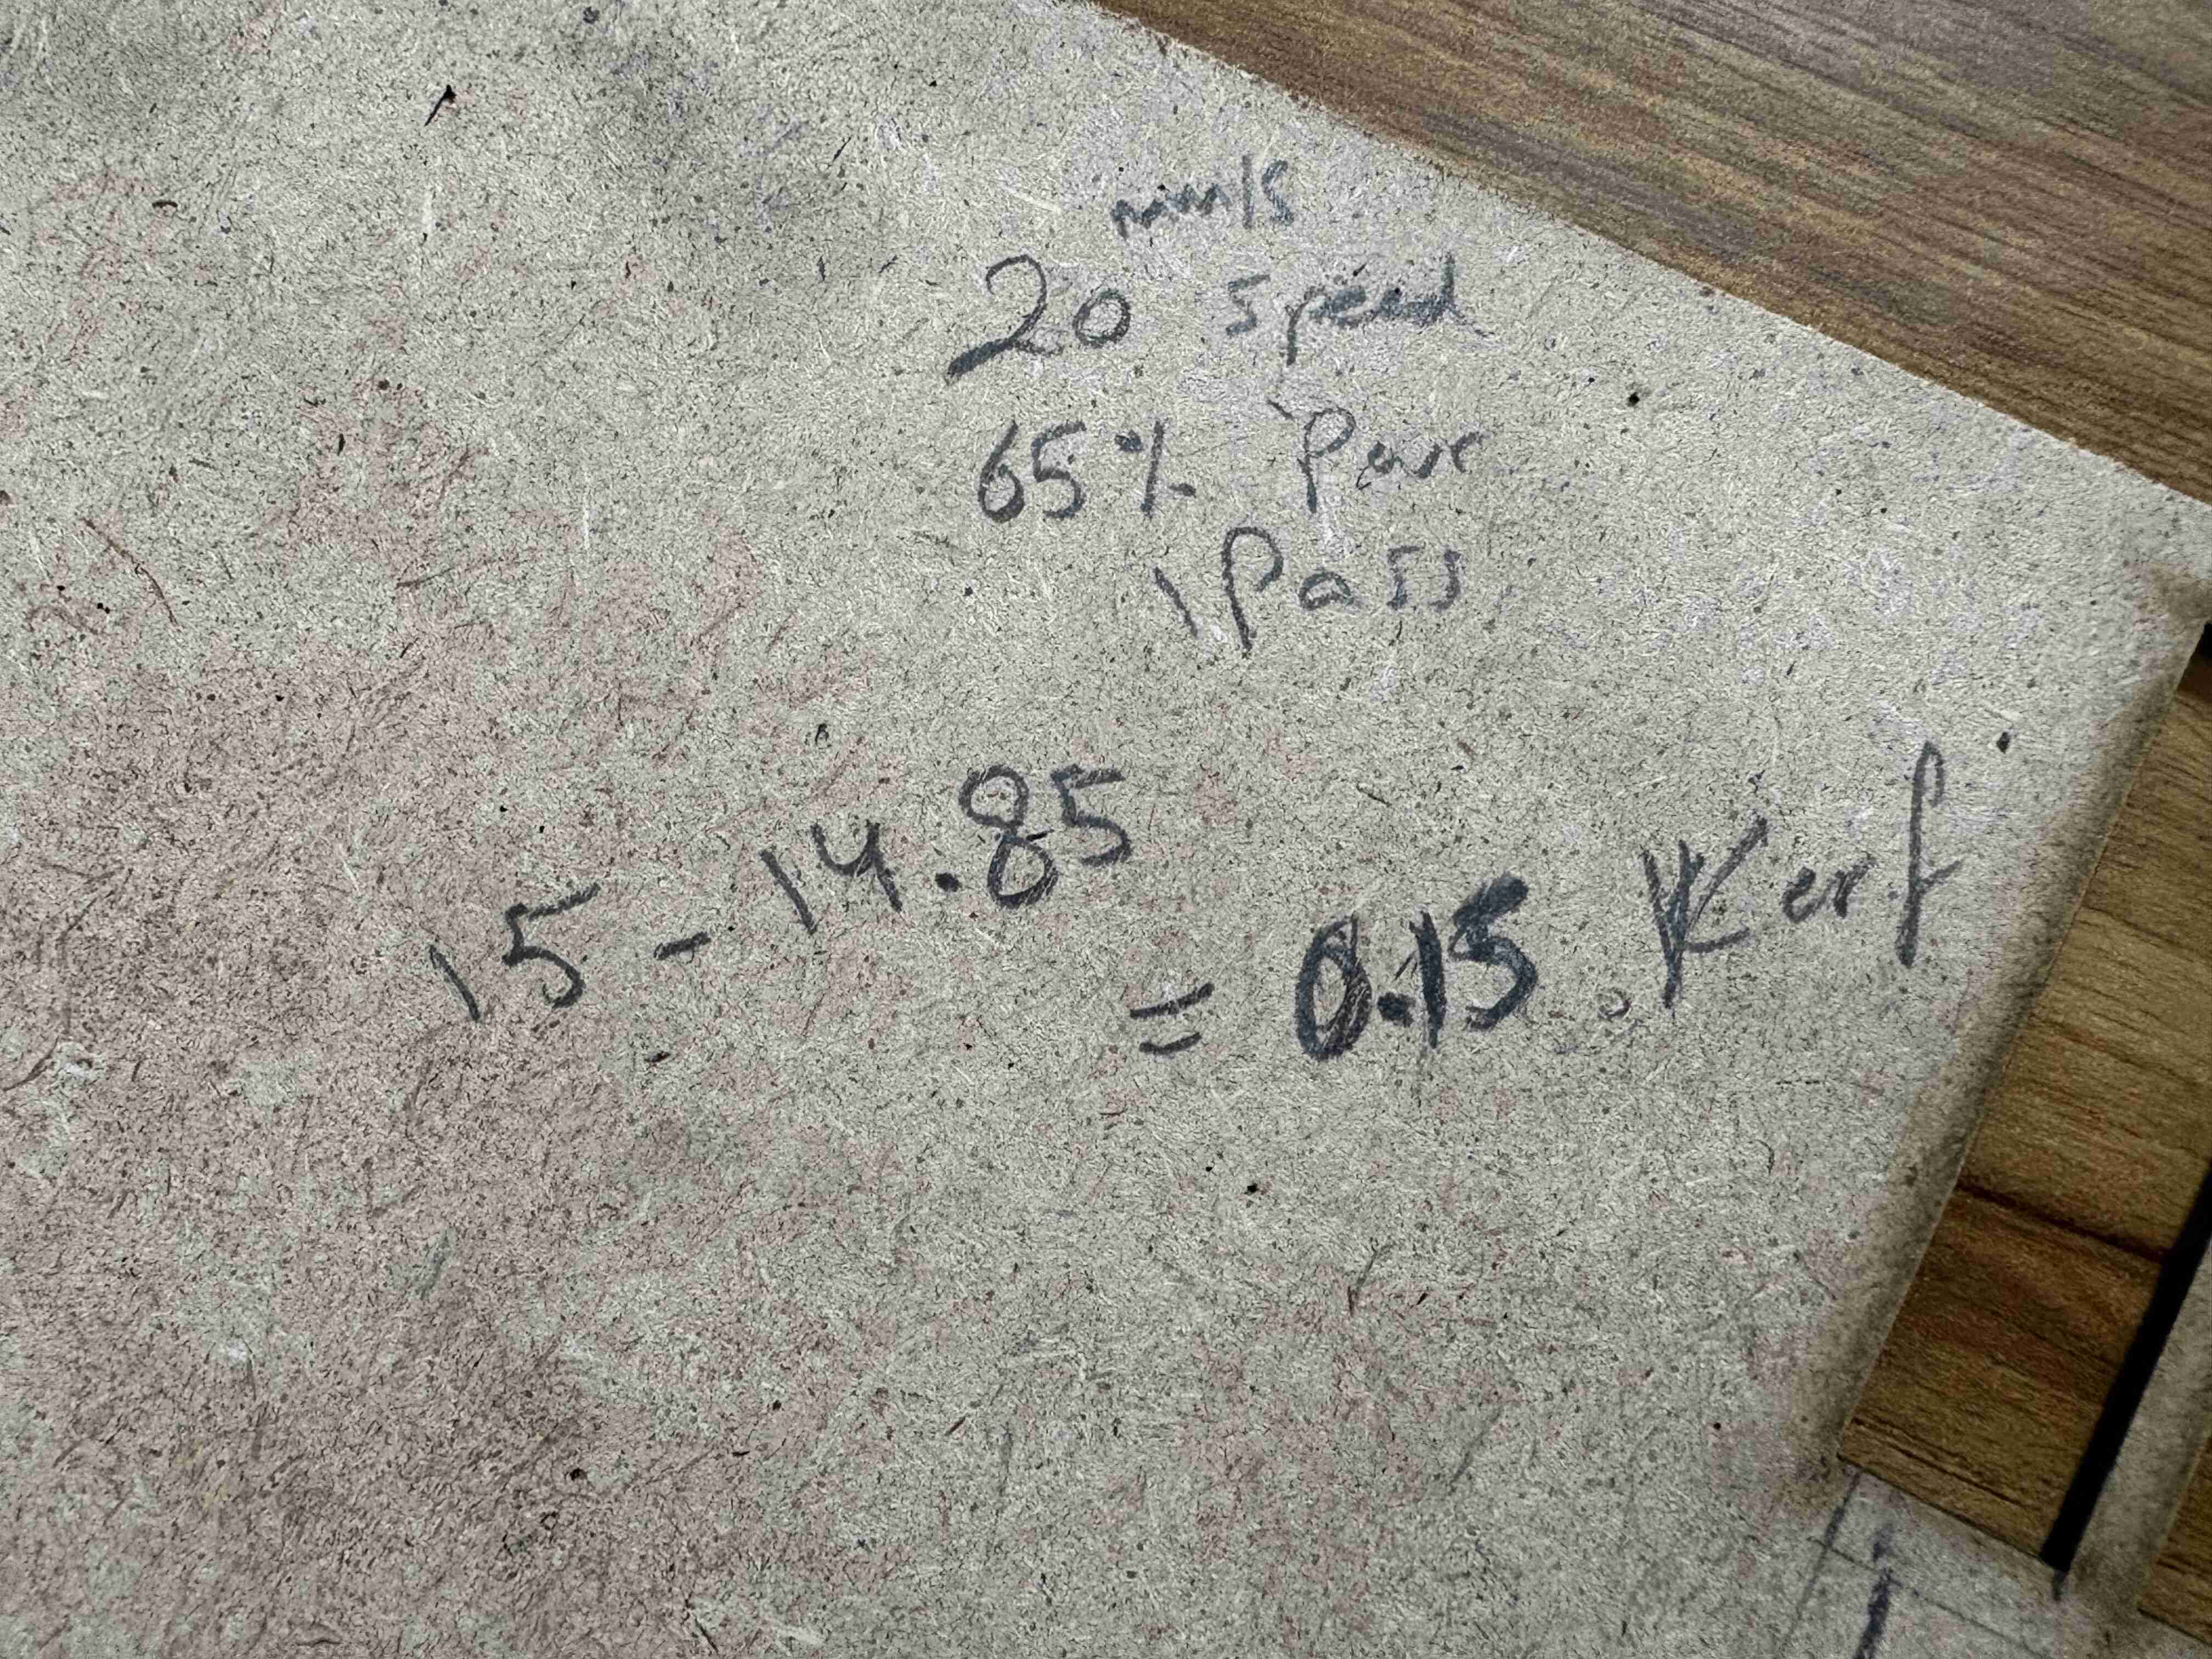 mm/s
20 speed
65% Powr
1 Pass
15 - 14.85
= 0.15 Kerf